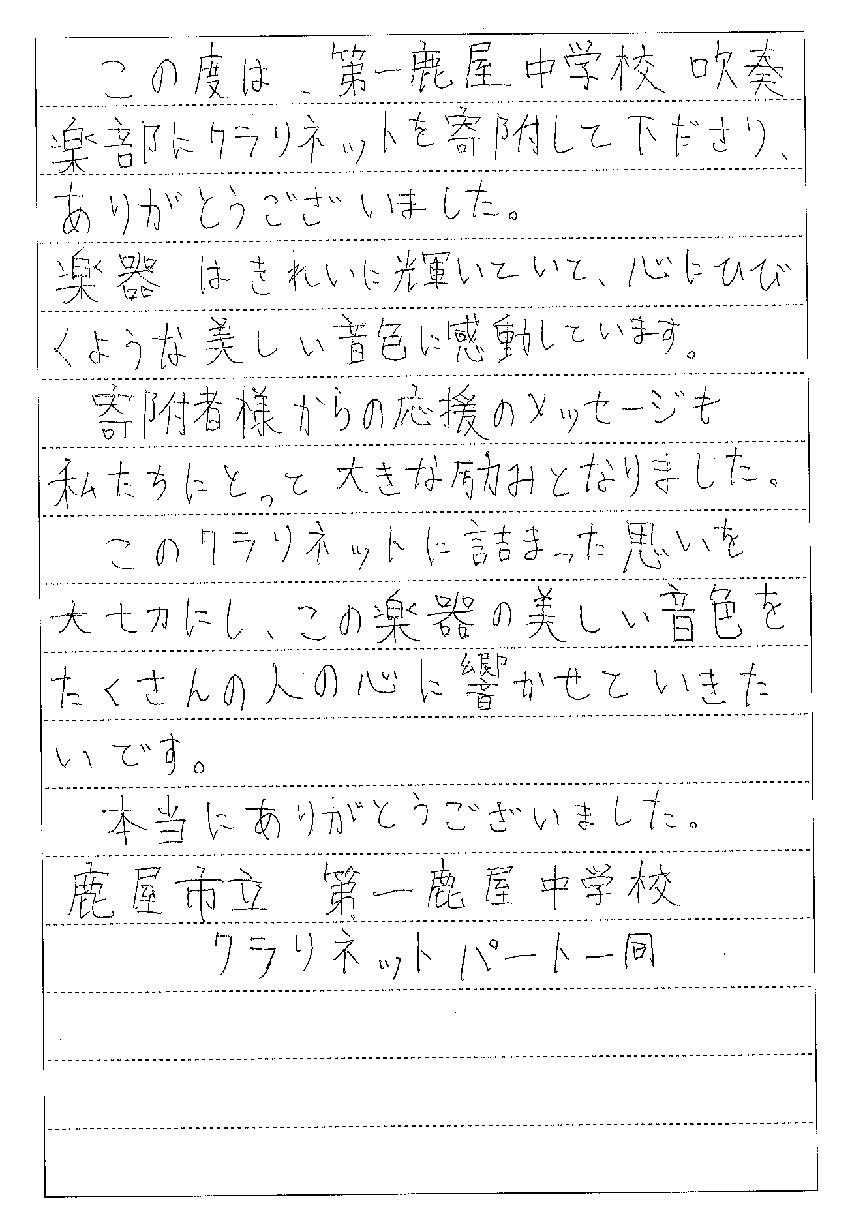 この度は、第一鹿屋中学校 吹奏
楽部にクラリネットを寄附して下ださり、
ありがとうございました。
楽器 はきれいに輝いていて、心にひび
くような美しい音色に感動しています。
寄附者様からの応援のメッセージも
私たちにとって大きな励みとなりました。
このクラリネットに詰まった思いを
大七刀にし、この楽器の美しい音色を
たくさんの人の心に響かせていきた
いです。
本当にありがとうございました。
鹿屋市立 第一鹿屋中学校
クラリネットパート一同